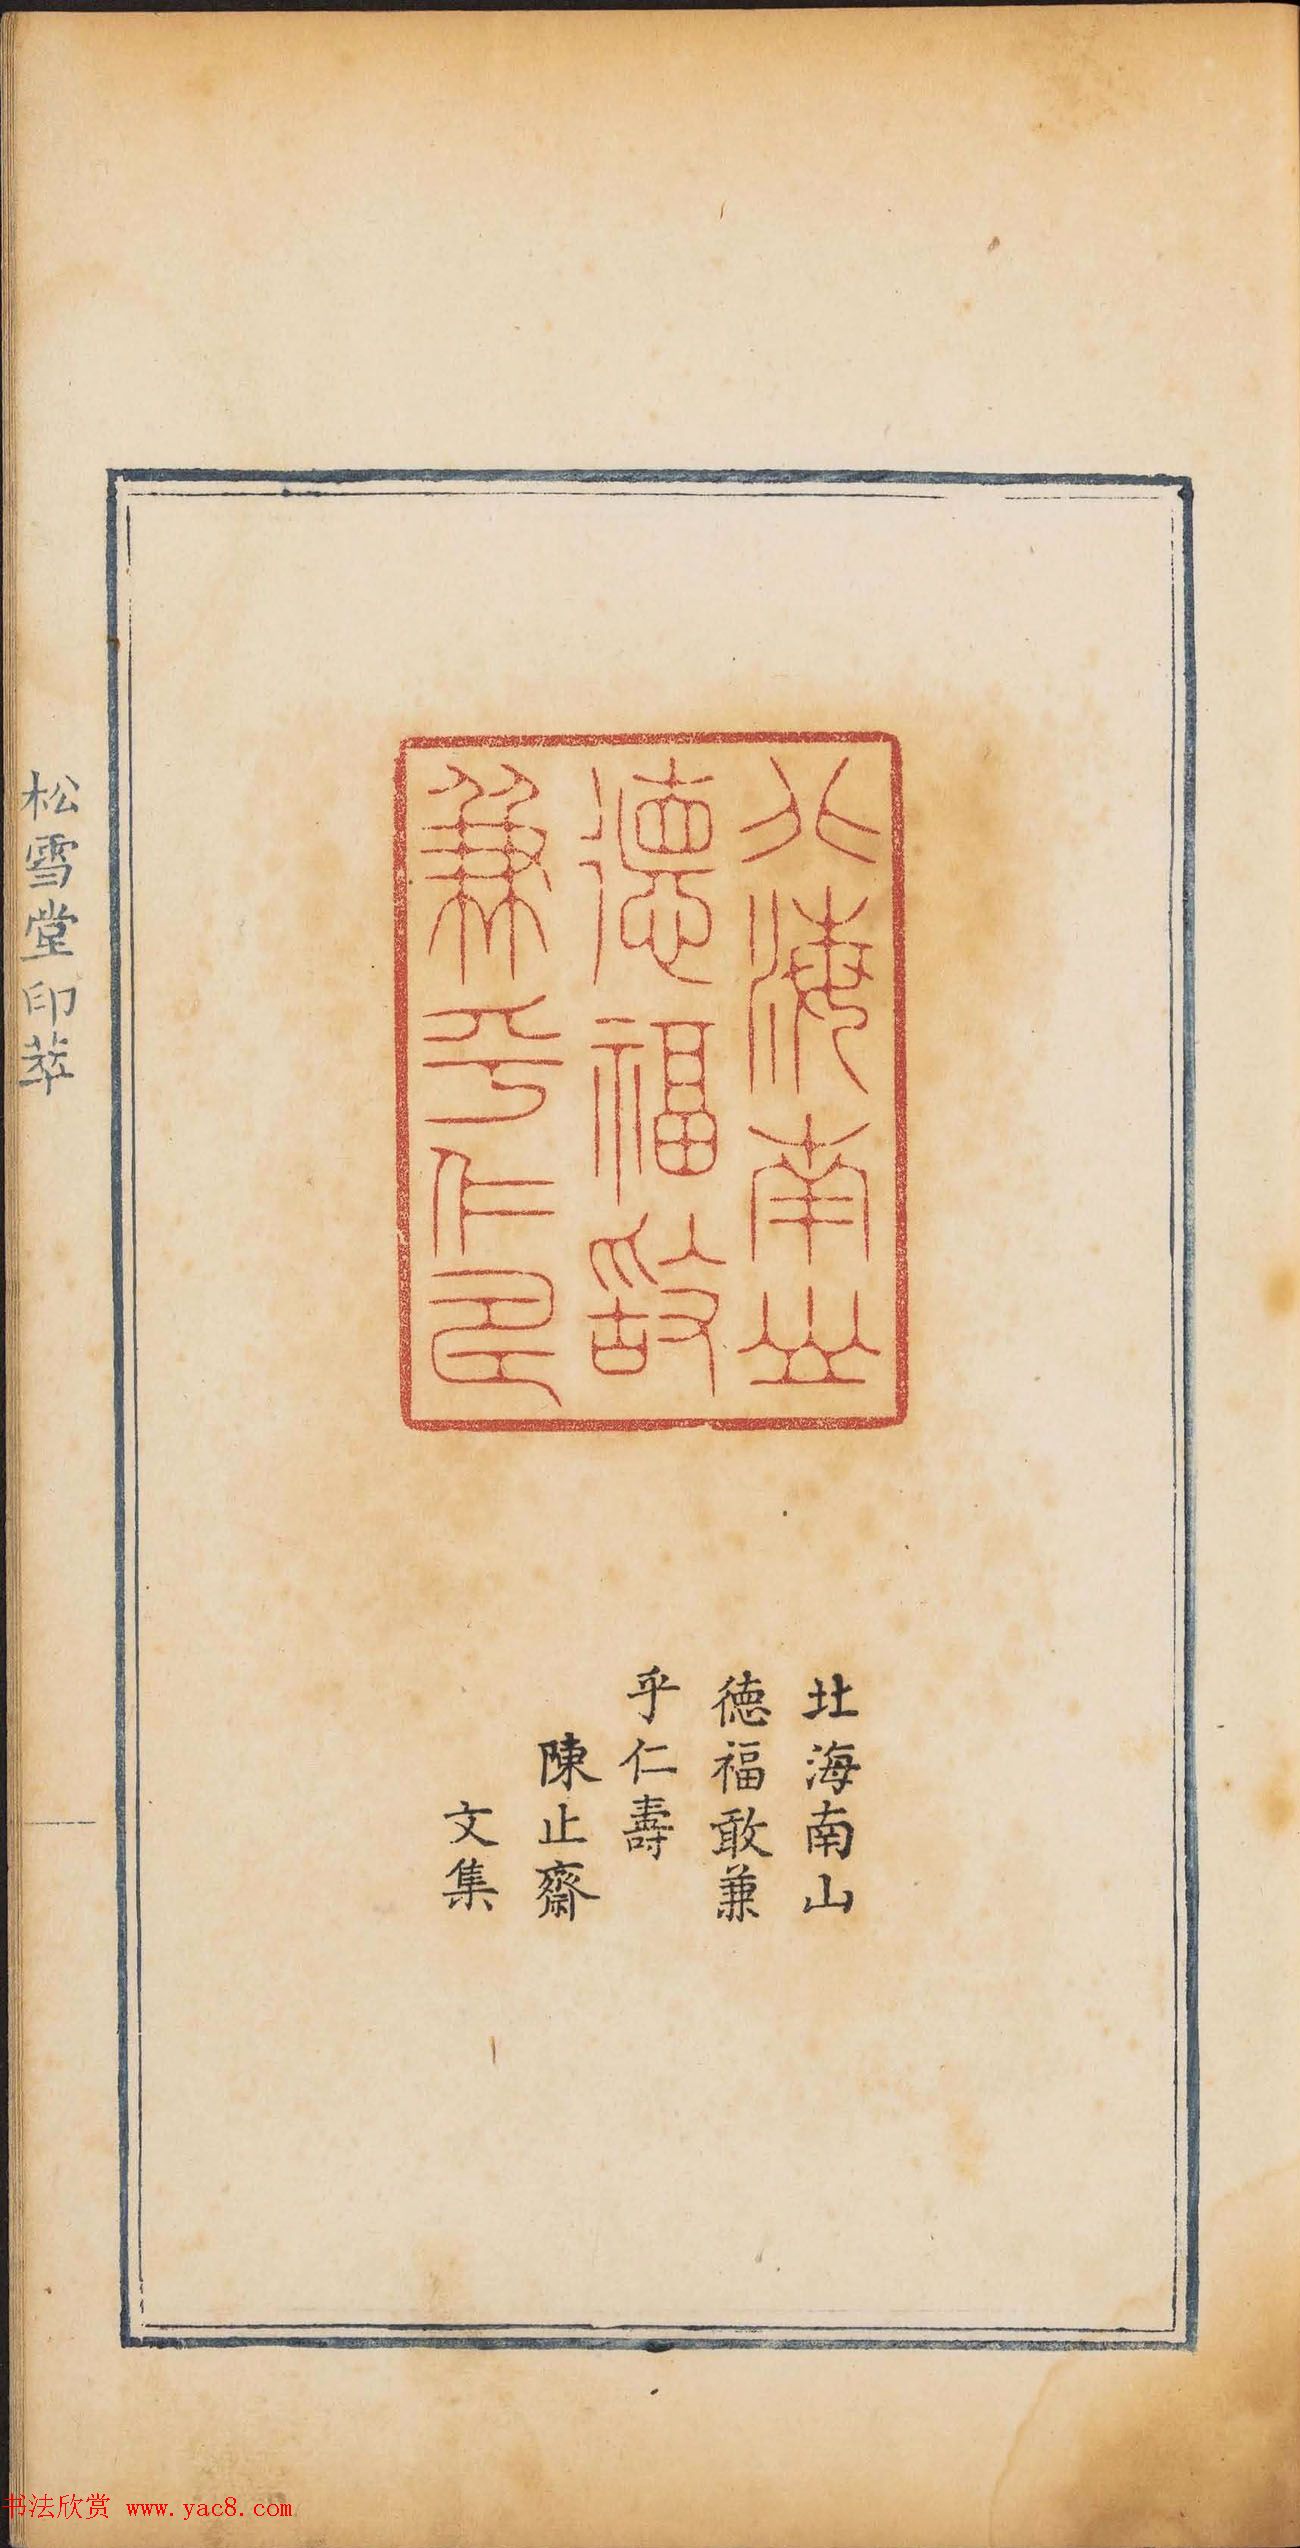 北海南山
德福敢
兼乎仁壽
北海南山
徳福敢兼
乎仁壽
陳止齋
文集
松雪堂印萃
书法欣赏 www.yac8.com